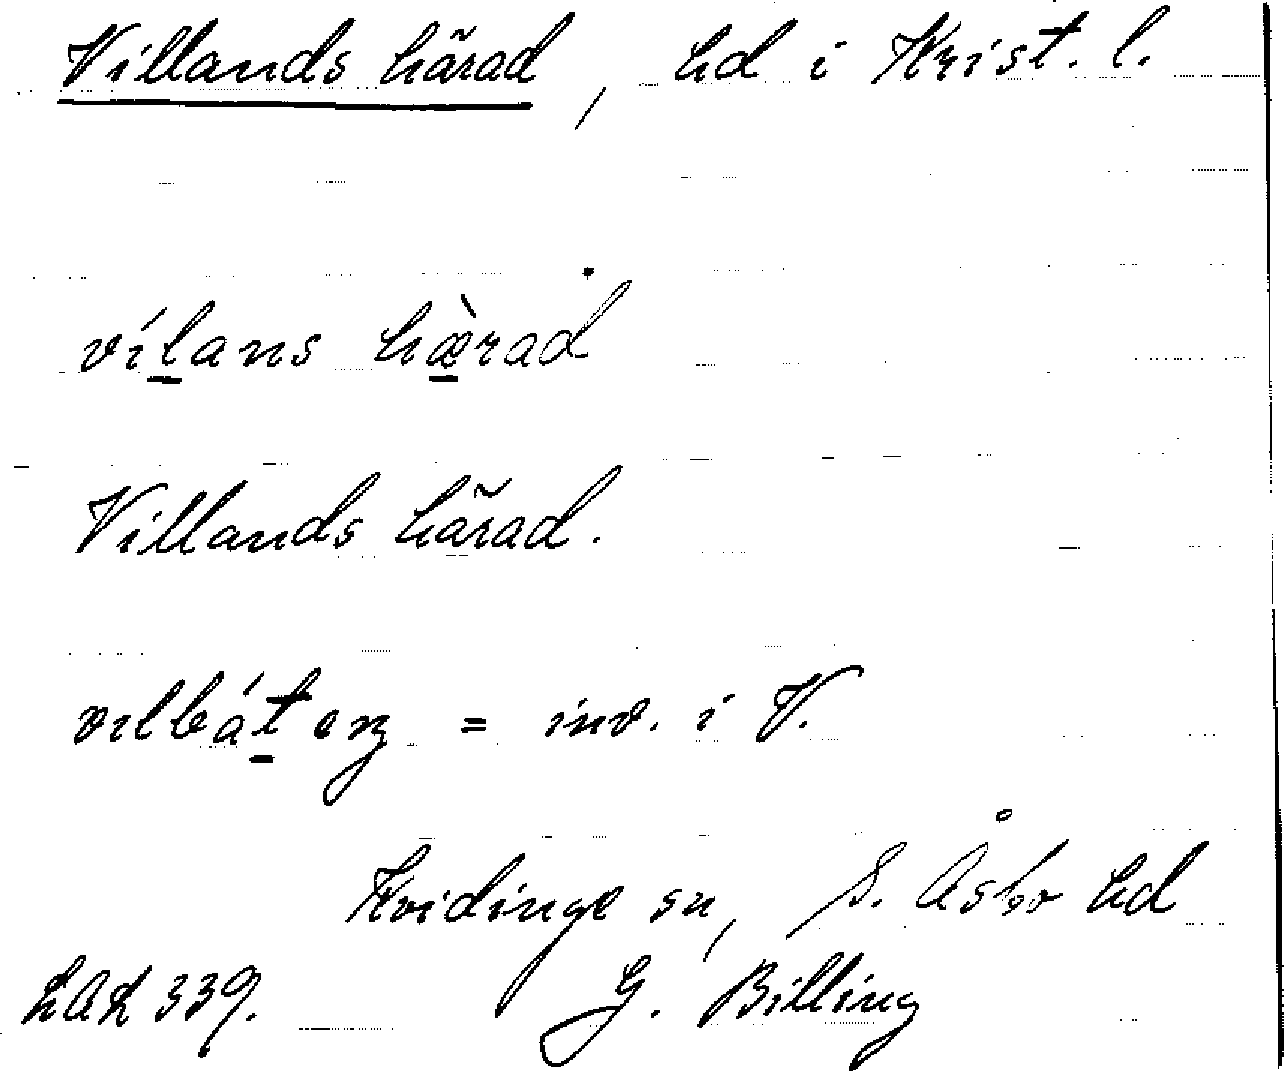 Villands härad, hd i Krist. l.
vílans hæ̀rad
Villands härad.
vilbátɘɴ = inv. i V.
Kvidinge sn, S. Åsbo hd
LAL 339. G. Billing